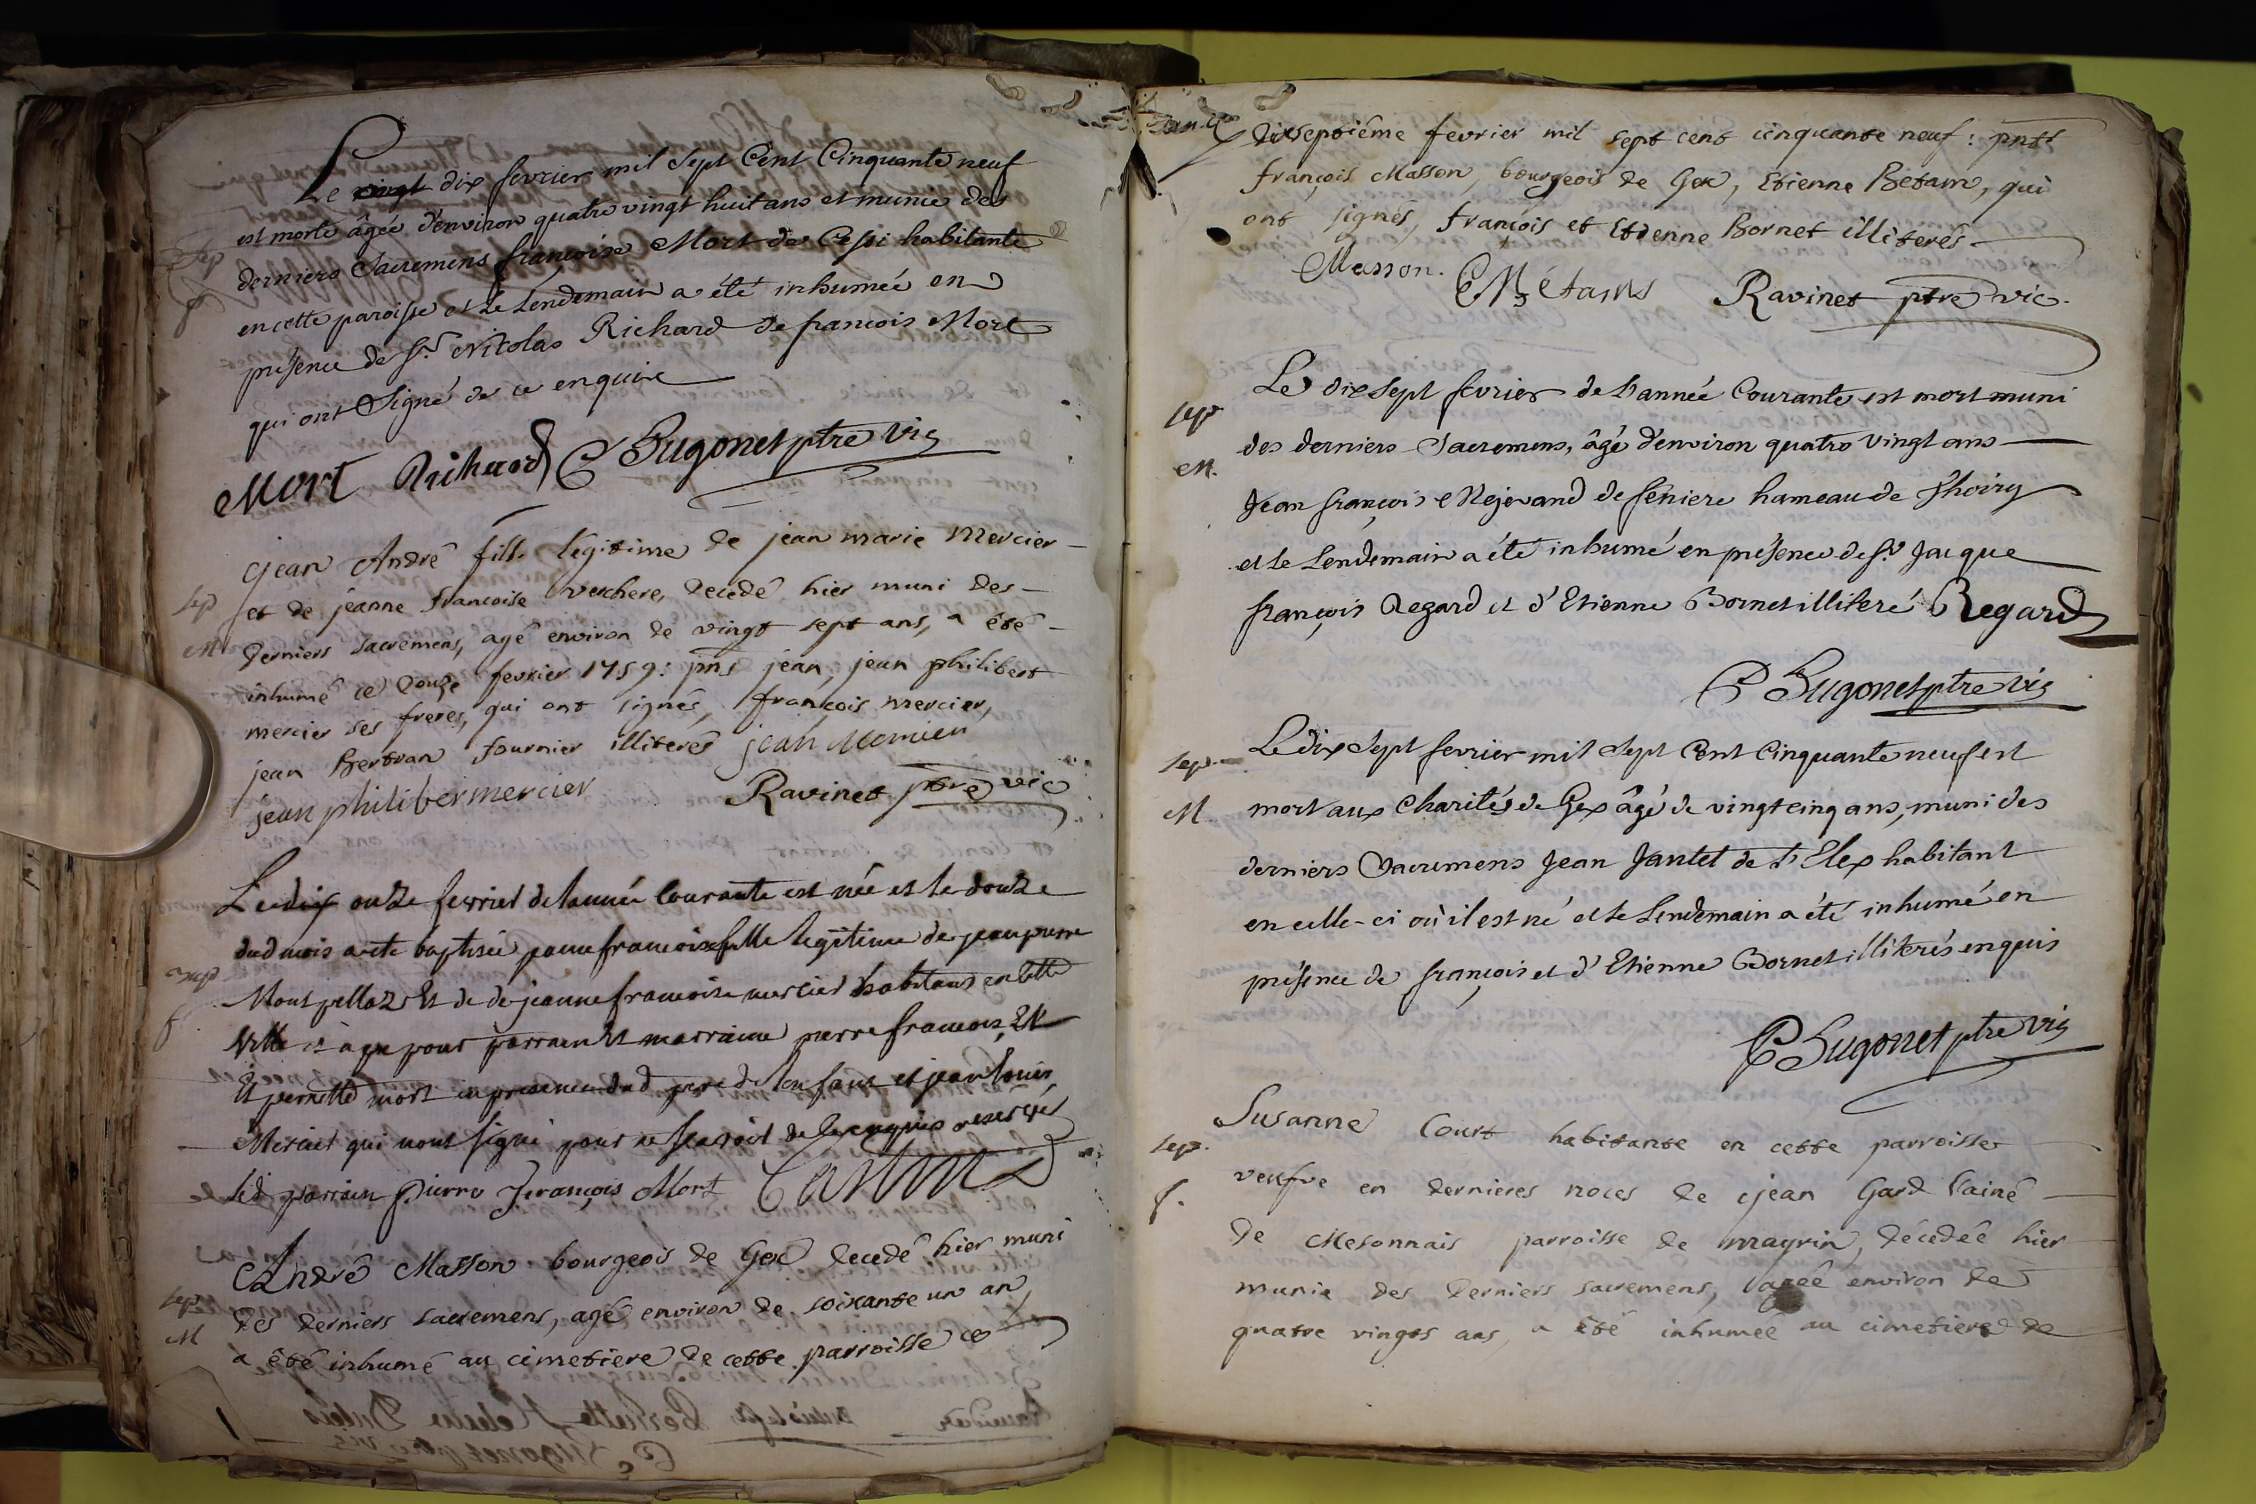 Le vingt dix fevrier mil sept Cent Cinquante neuf
est morte âgée d'environ quatre vingt huit ans et munie des
Sep
derniers Sacremens françoise Mort de Cessi habitante
f
en cette paroisse et le Lendemain a été inhumée en
présence de Sr. Nicolas Richard de francois Mort
qui ont Signé de ce enquire
Mort Richard C Bugonet ptre Vic
jean André fill legitime de jean marie Mercier
Sep
et de jeanne francoise verchere, decedé hier muni des
M
derniers sacremens, agé environ de vingt sept ans, a été
inhumé ce Douze fevrier 1759: pns jean, jean philibert
mercier ses freres, qui ont signés, françois mercier,
jean Bertran fournier illiterés jean Mercier
jean philiber mercier Ravinet ptre vic
Le dix onze fevrier de lannée Courante est née et le douze
dud mois a été baptisée jeanne francoise fille legitime de jean pierre
Bapt
Montpellaz Et de de jeanne francoise mercier habitans en cette
f
Ville et a eu pour parrain Et marraine pierre francois Et
Et pernette mort en presence dud pere de lenfant et jean louis
Mercier qui nont signé pour ne scavoir de ce enquis
led parrain Pierre François Mort
André Masson bourgeois de Gex decedé hier muni
sep.
des derniers sacremens, agé environ de soixante un an,
M
a été inhumé au cimetiere de cette parroisse ce
dixseptiême fevrier mil sept cent cinquante neuf: pnts
françois Masson, bourgeois de Gex, Etienne Betam, qui
ont signés, françois et Etienne Bornet illiterés
Masson. Ravinet ptre vic.
Le dix sept fevrier de l'année Courante est mort muni
sep
des derniers Sacremens, âgé d'environ quatre vingt ans
M.
Jean françois Mejerand de feniere hameau de Thoiry
et le Lendemain a été inhumé en présence de Sr. Jacque
françois Regard et d'Etienne Bornet illiteré Regard
C Bugonet ptre Vic
Le dix Sept fevrier mil Sept Cent Cinquante neuf est
sep.
mort aux Charités de Gex âgé de vingt cinq ans, muni des
M
derniers Sacremens Jean Jantet de Lelex habitant
en celle-ci où il est né et le Lendemain a été inhumé en
présence de françois et d'Etienne Bornet illiterés enquis
C Bugonet ptre Vic
Susanne Court habitante en cette parroisse
sep.
veufve en dernieres noces de jean Gard l'ainé
f.
de Mesonnais parroisse de mayrin, décedée hier
munie des derniers sacremens, agée environ de
quatre vingts ans, a été inhumée au cimetiere de